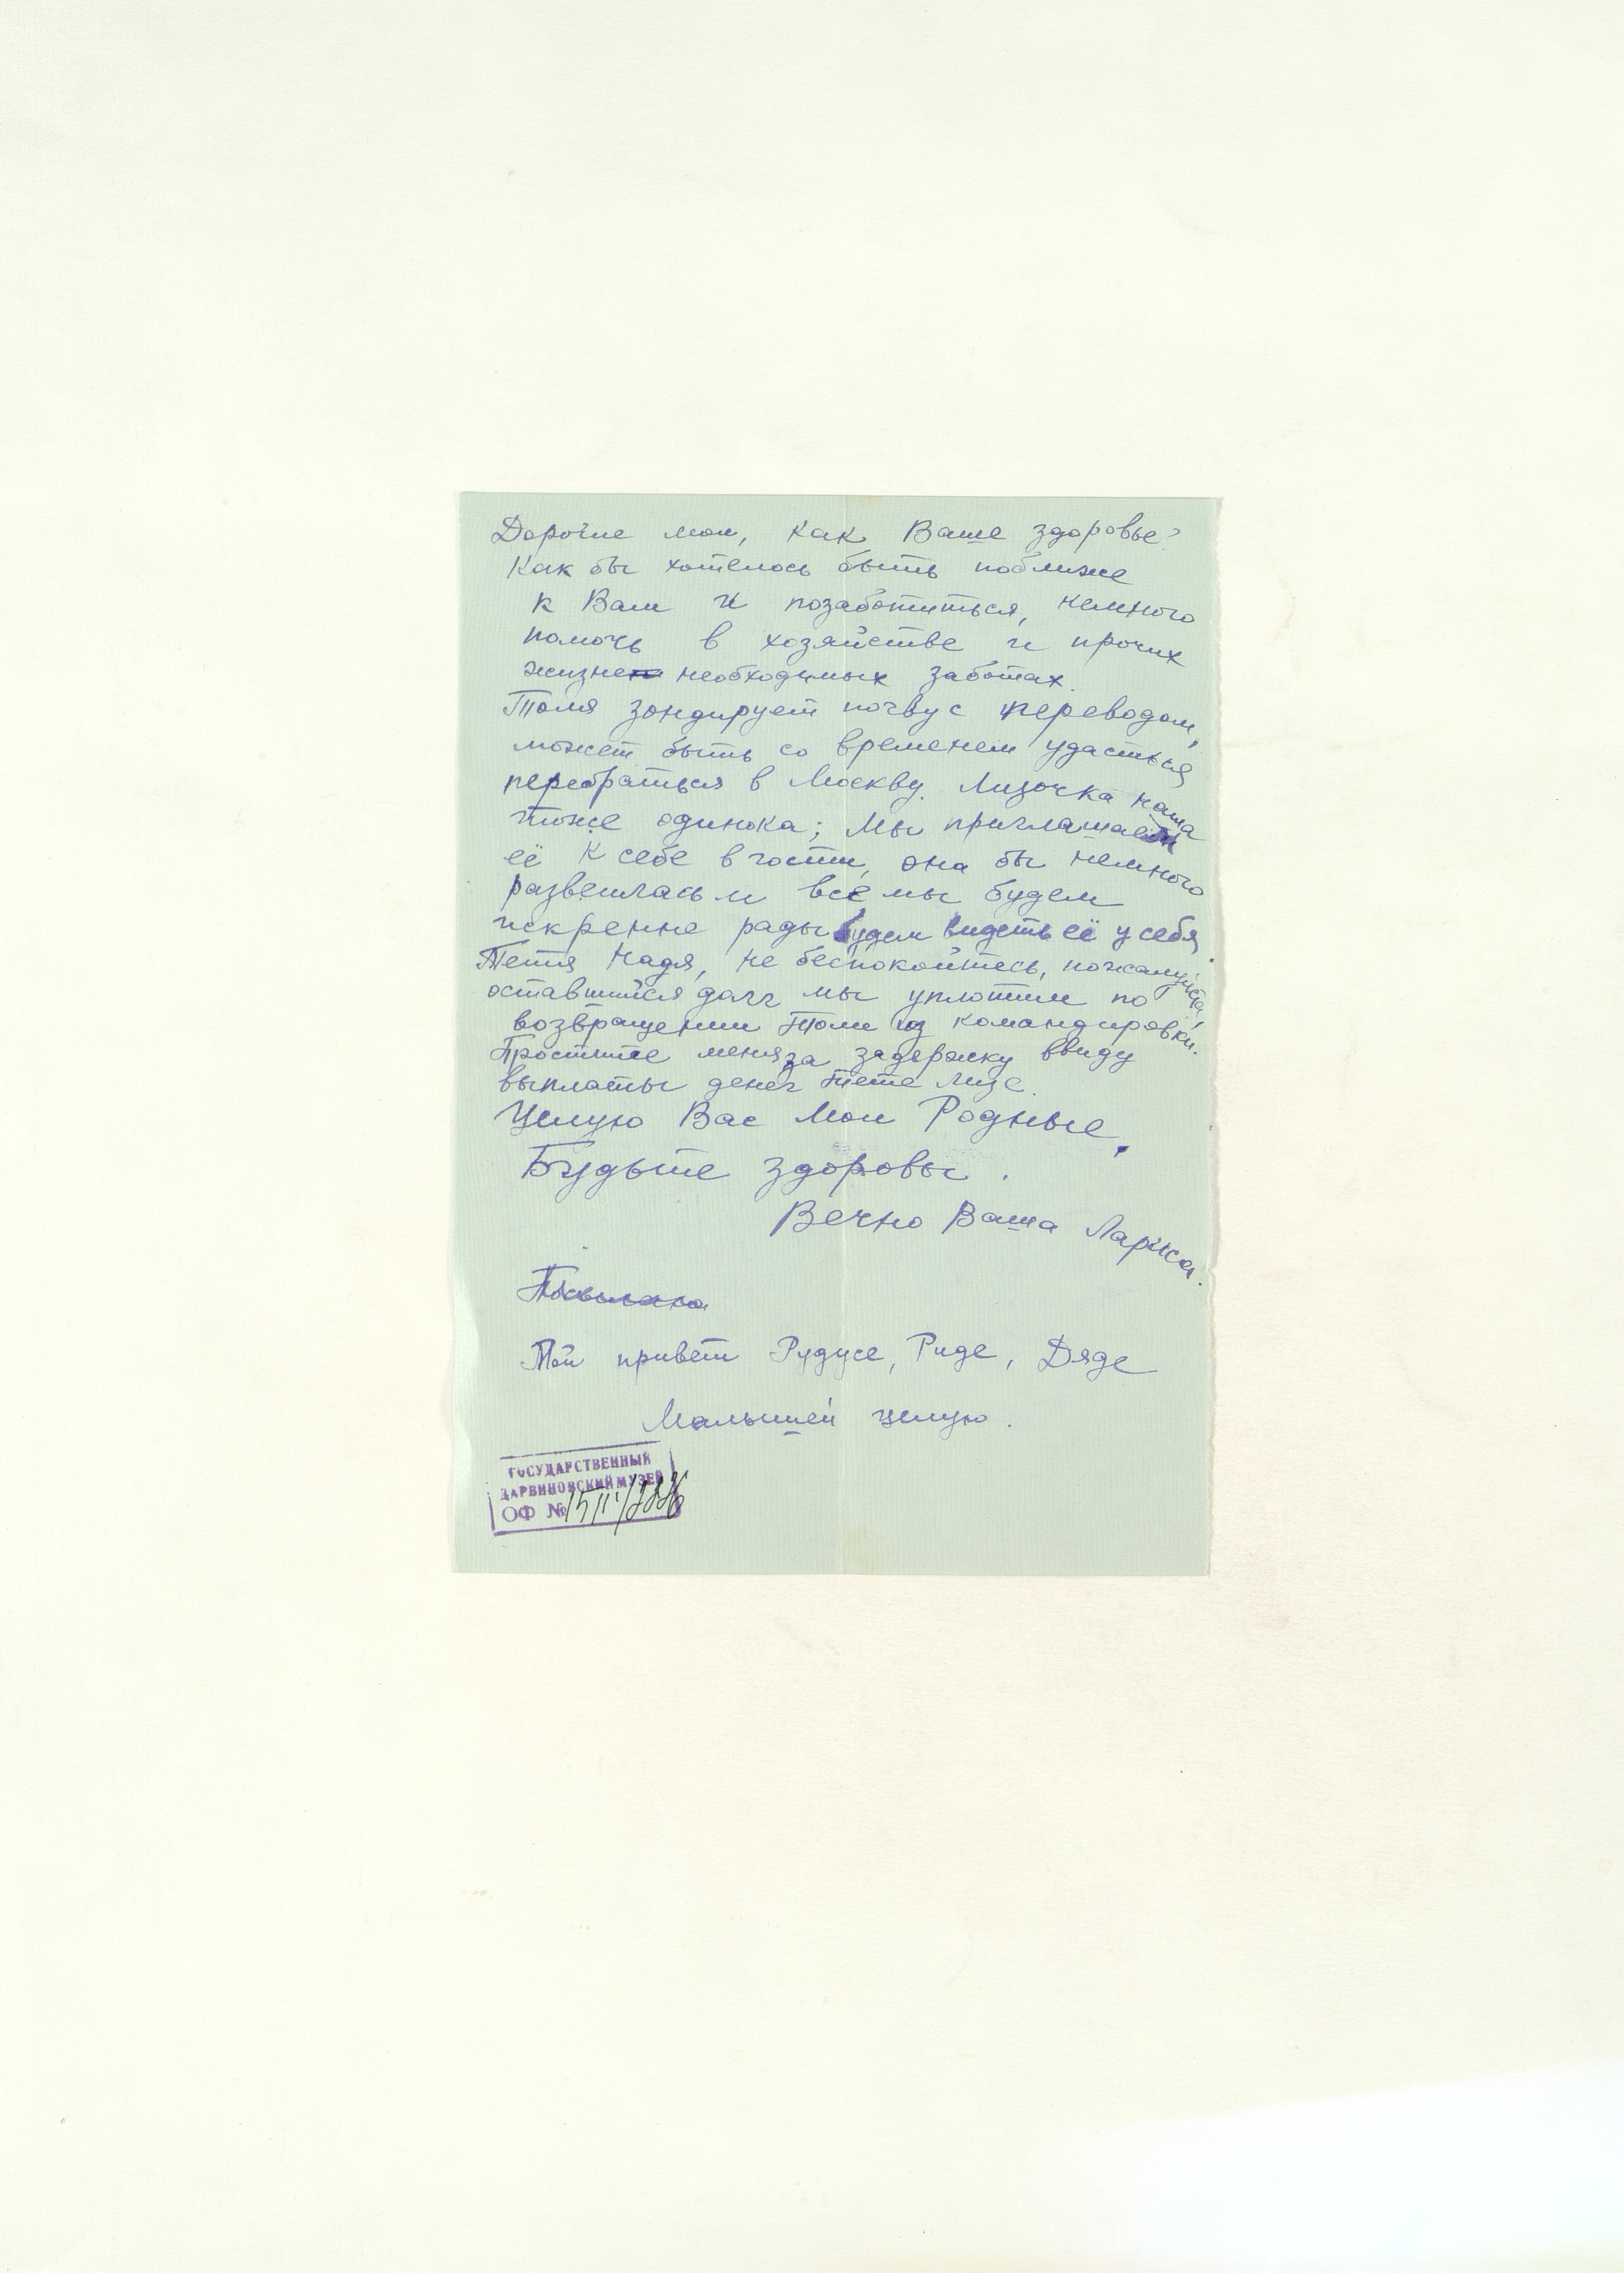 Дорогие мои, как Ваше здоровье?
Как бы хотелось быть поближе
к Вам и позаботиться, немного
помочь в хозяйстве и прочих
жизне необходимых заботах.
Толя зондирует почву с переводом,
может быть со временем удасться
перебраться в Москву. Лизочка наша
тоже одинока; Мы приглашаем
её к себе в гости, она бы немного
развеялась и все мы будем
искренне рады будем видеть её у себя.
Тетя Надя, не беспокойтесь, пожалуйста,
оставшийся долг мы уплотим по
возвращении Толи из командировки.
Простите меня за задержку ввиду
выплаты денег тете Лизе.
Целую Вас Мои Родные.
Будьте здоровы.
Вечно Ваша Лариса.
Посылаю
Мой привет Рудусе, Риде, Дяде
Малышей целую.
ГОСУДАРСТВЕННЫЙ
ДАРВИНОВСКИЙ МУЗЕЙ
ОФ №